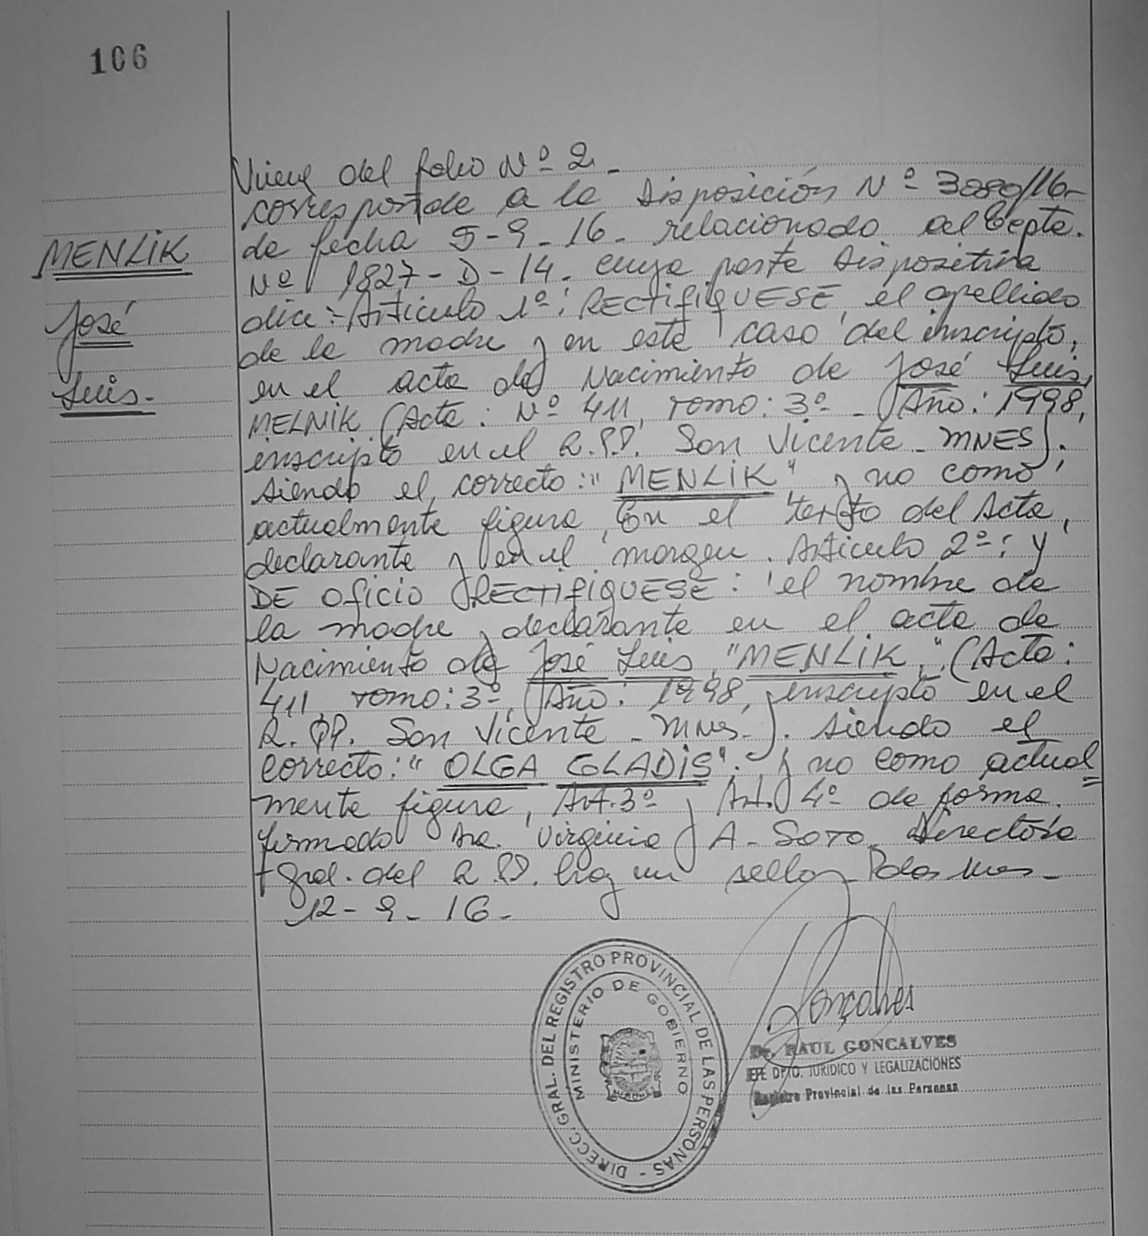 106
Viene del folio Nº 2.-
corresponde a la Disposición Nº 3080/16-
de fecha 5-9-16- relacionado al Expte.
Nº 1827-D-14. cuya parte Dispositiva
dice:- Articulo 1º: RECTIFIQUESE el apellido
de la madre y en este caso del inscripto,
en el acta de Nacimiento de José Luis,
MELNIK (Acta: Nº 411, Tomo: 3º - Año: 1998,
inscripto en el R.PP. San Vicente - MNES).
siendo el correcto: "MENLIK" y no como
actualmente figura en el texto del Acta,
declarante y en el margen. Articulo 2º: y
DE Oficio RECTIFIQUESE: el nombre de
la madre y declarante en el acta de
Nacimiento de José Luis, "MENLIK," (Acta:
411, Tomo: 3º, Año: 1998, inscripto en el
R.PP. San Vicente - MNES-). siendo el
correcto: "OLGA GLADIS". y no como actual=
mente figura, Art. 3º y Art. 4º de forma.
firmado Dra. Virginia A. SOTO Directora
Gral. del R.PP. hay un sello- Posadas Mnes-
12-9-16-
MENLIK
José
Luis.-
DIRECC. GRAL. DEL REGISTRO PROVINCIAL DE LAS PERSONAS -
MINISTERIO DE GOBIERNO
Gonçalves
Dr. RAUL GONCALVES
JEFE DPTO. JURIDICO Y LEGALIZACIONES
Registro Provincial de las Personas